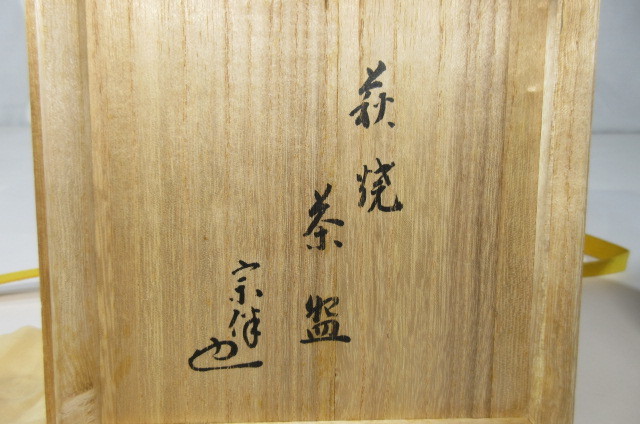 萩焼
茶盌
宗伴